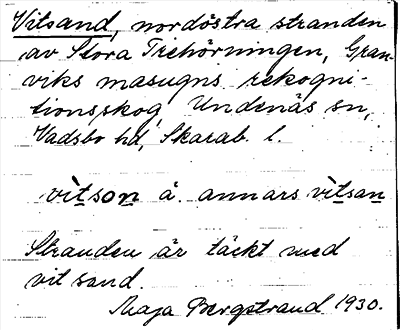 Vitsand, nordöstra stranden
av Stora Trehörningen, Gran-
viks masugns rekogni-
tionsskog, Undenäs sn,
Vadsbo hd, Skarab. l.
vìtson å. annars vìtsan
Stranden är täckt med
vit sand.
Maja Bergstrand 1930.